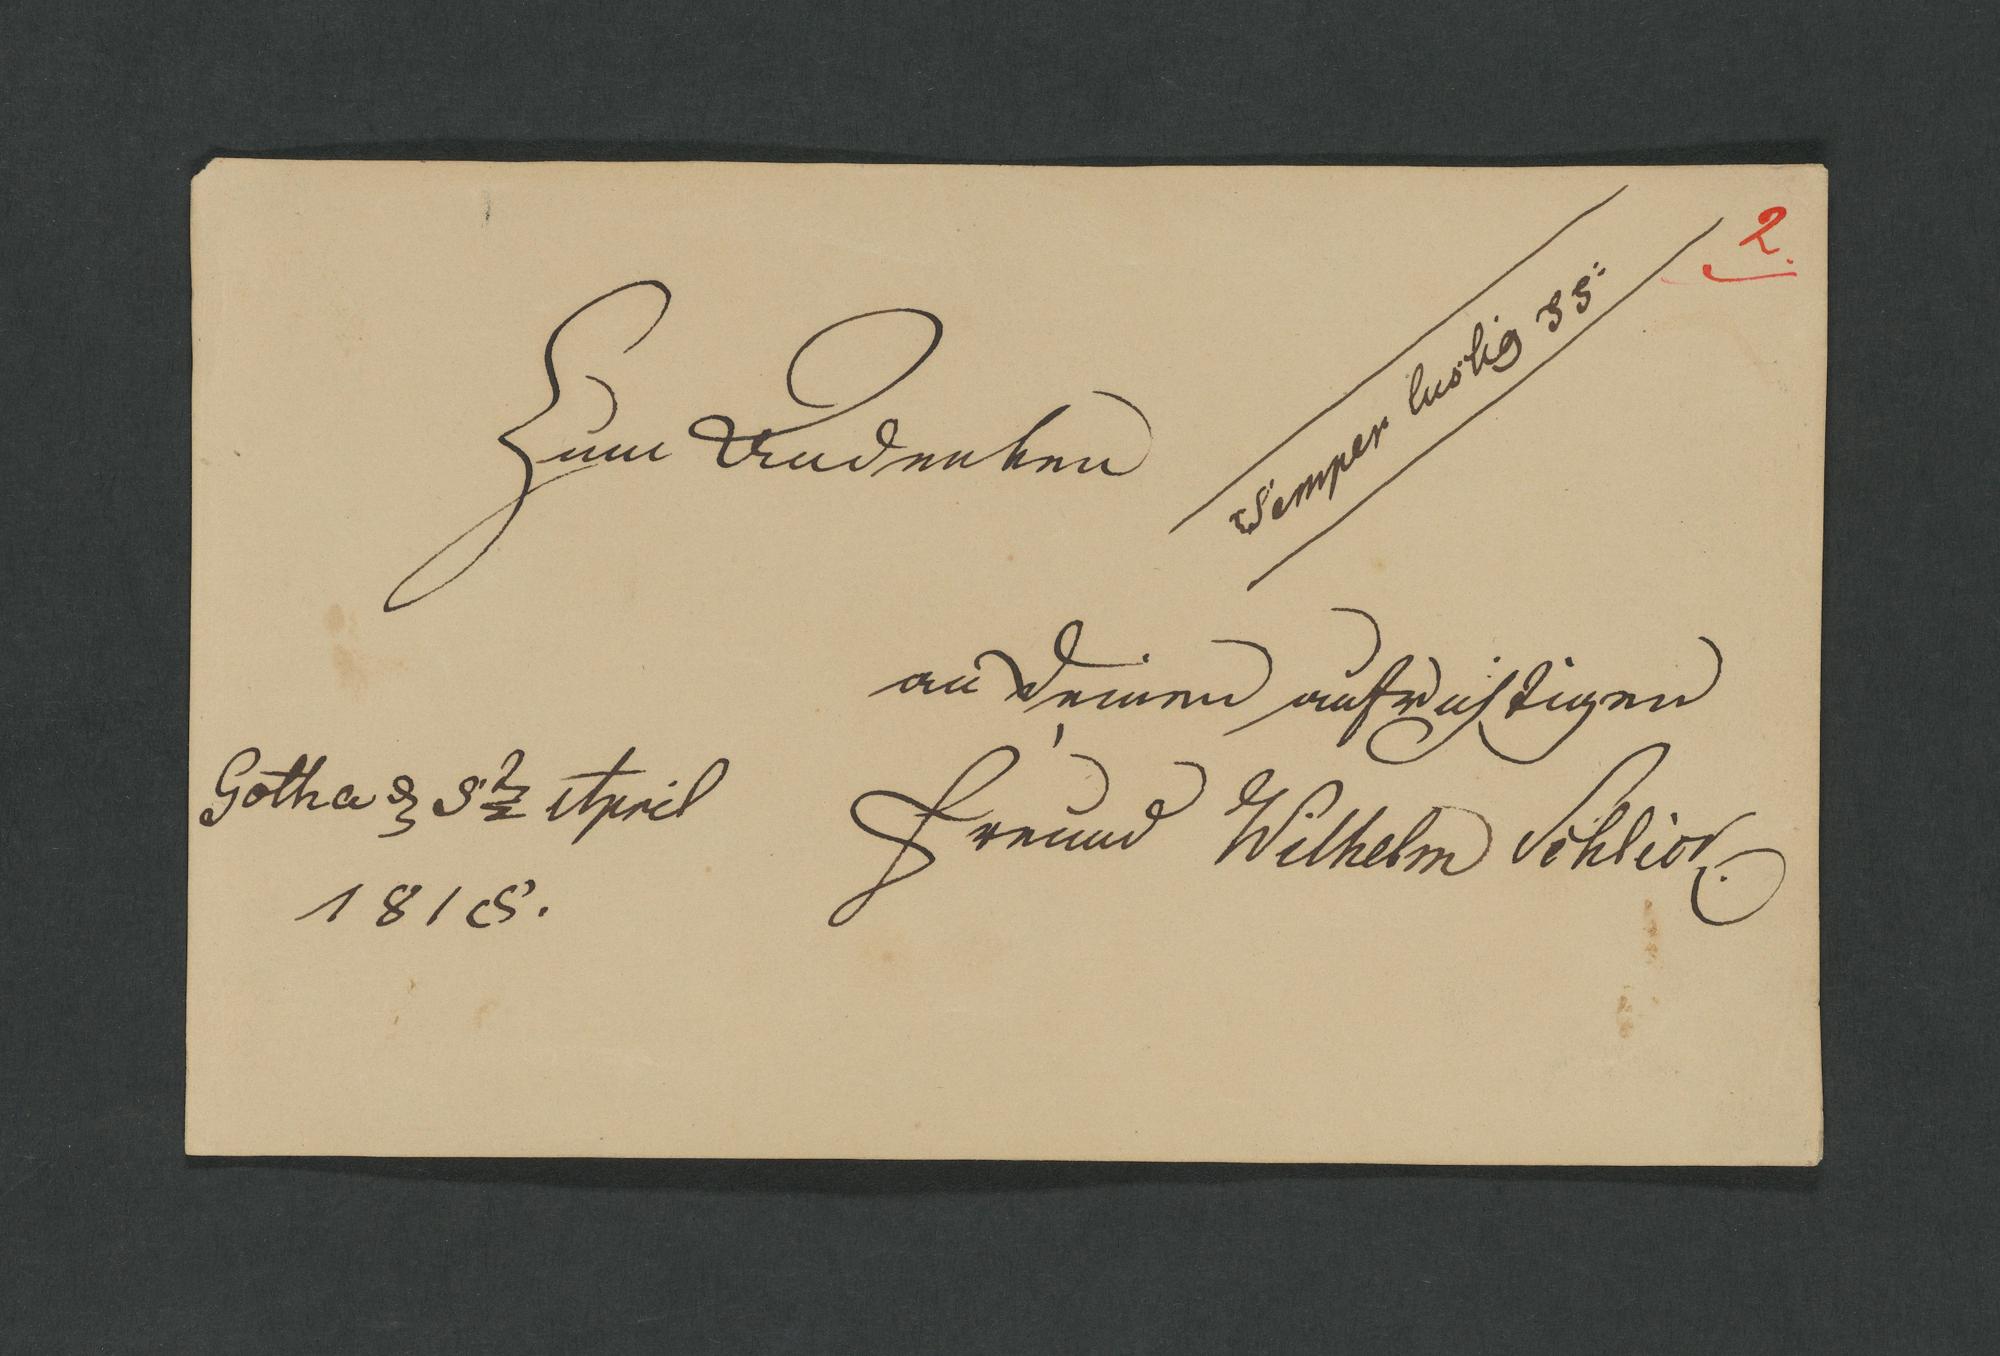 2.
Semper lustig
Zum Andenken
an Deinen aufrichtigen
Freund Wilhelm
Gotha d 8t April
1818.